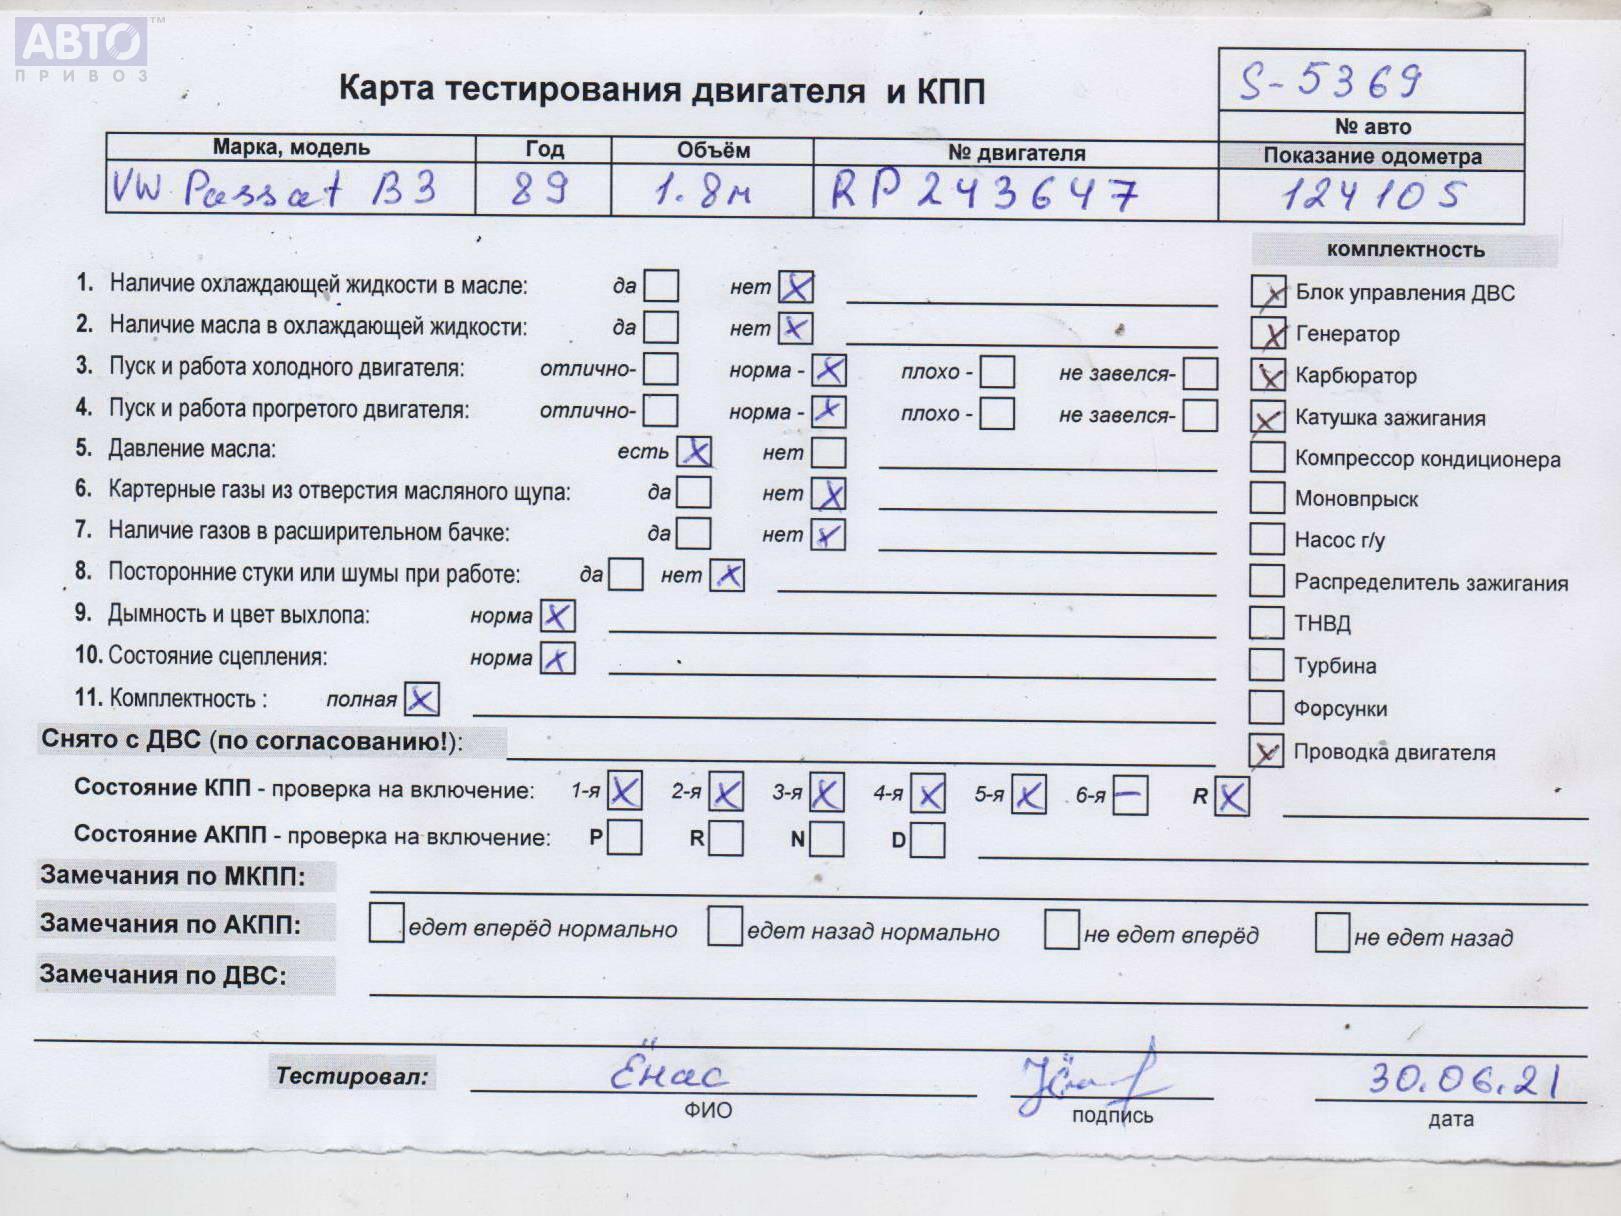 АВТО™
ПРИВОЗ
Карта тестирования двигателя и КПП
S-5369
№ авто
Марка, модель Год Объём № двигателя Показание одометра
VW Passat B3 89 1.8м RP243647 124105
комплектность
1. Наличие охлаждающей жидкости в масле: да нет X
Блок управления ДВС X
2. Наличие масла в охлаждающей жидкости: да нет X
Генератор X
3. Пуск и работа холодного двигателя: отлично- норма - X плохо - не завелся-
Карбюратор X
4. Пуск и работа прогретого двигателя: отлично- норма - X плохо - не завелся-
Катушка зажигания X
5. Давление масла: есть X нет
Компрессор кондиционера
6. Картерные газы из отверстия масляного щупа: да нет X
Моновпрыск
7. Наличие газов в расширительном бачке: да нет X
Насос г/у
8. Посторонние стуки или шумы при работе: да нет X
Распределитель зажигания
9. Дымность и цвет выхлопа: норма X
ТНВД
10. Состояние сцепления: норма X
Турбина
11. Комплектность : полная X
Форсунки
Снято с ДВС (по согласованию!):
Проводка двигателя X
Состояние КПП - проверка на включение: 1-я X 2-я X 3-я X 4-я X 5-я X 6-я — R X
Состояние АКПП - проверка на включение: P R N D
Замечания по МКПП:
Замечания по АКПП: едет вперёд нормально едет назад нормально не едет вперёд не едет назад
Замечания по ДВС:
Тестировал: Ёнас 30.06.21
ФИО подпись дата